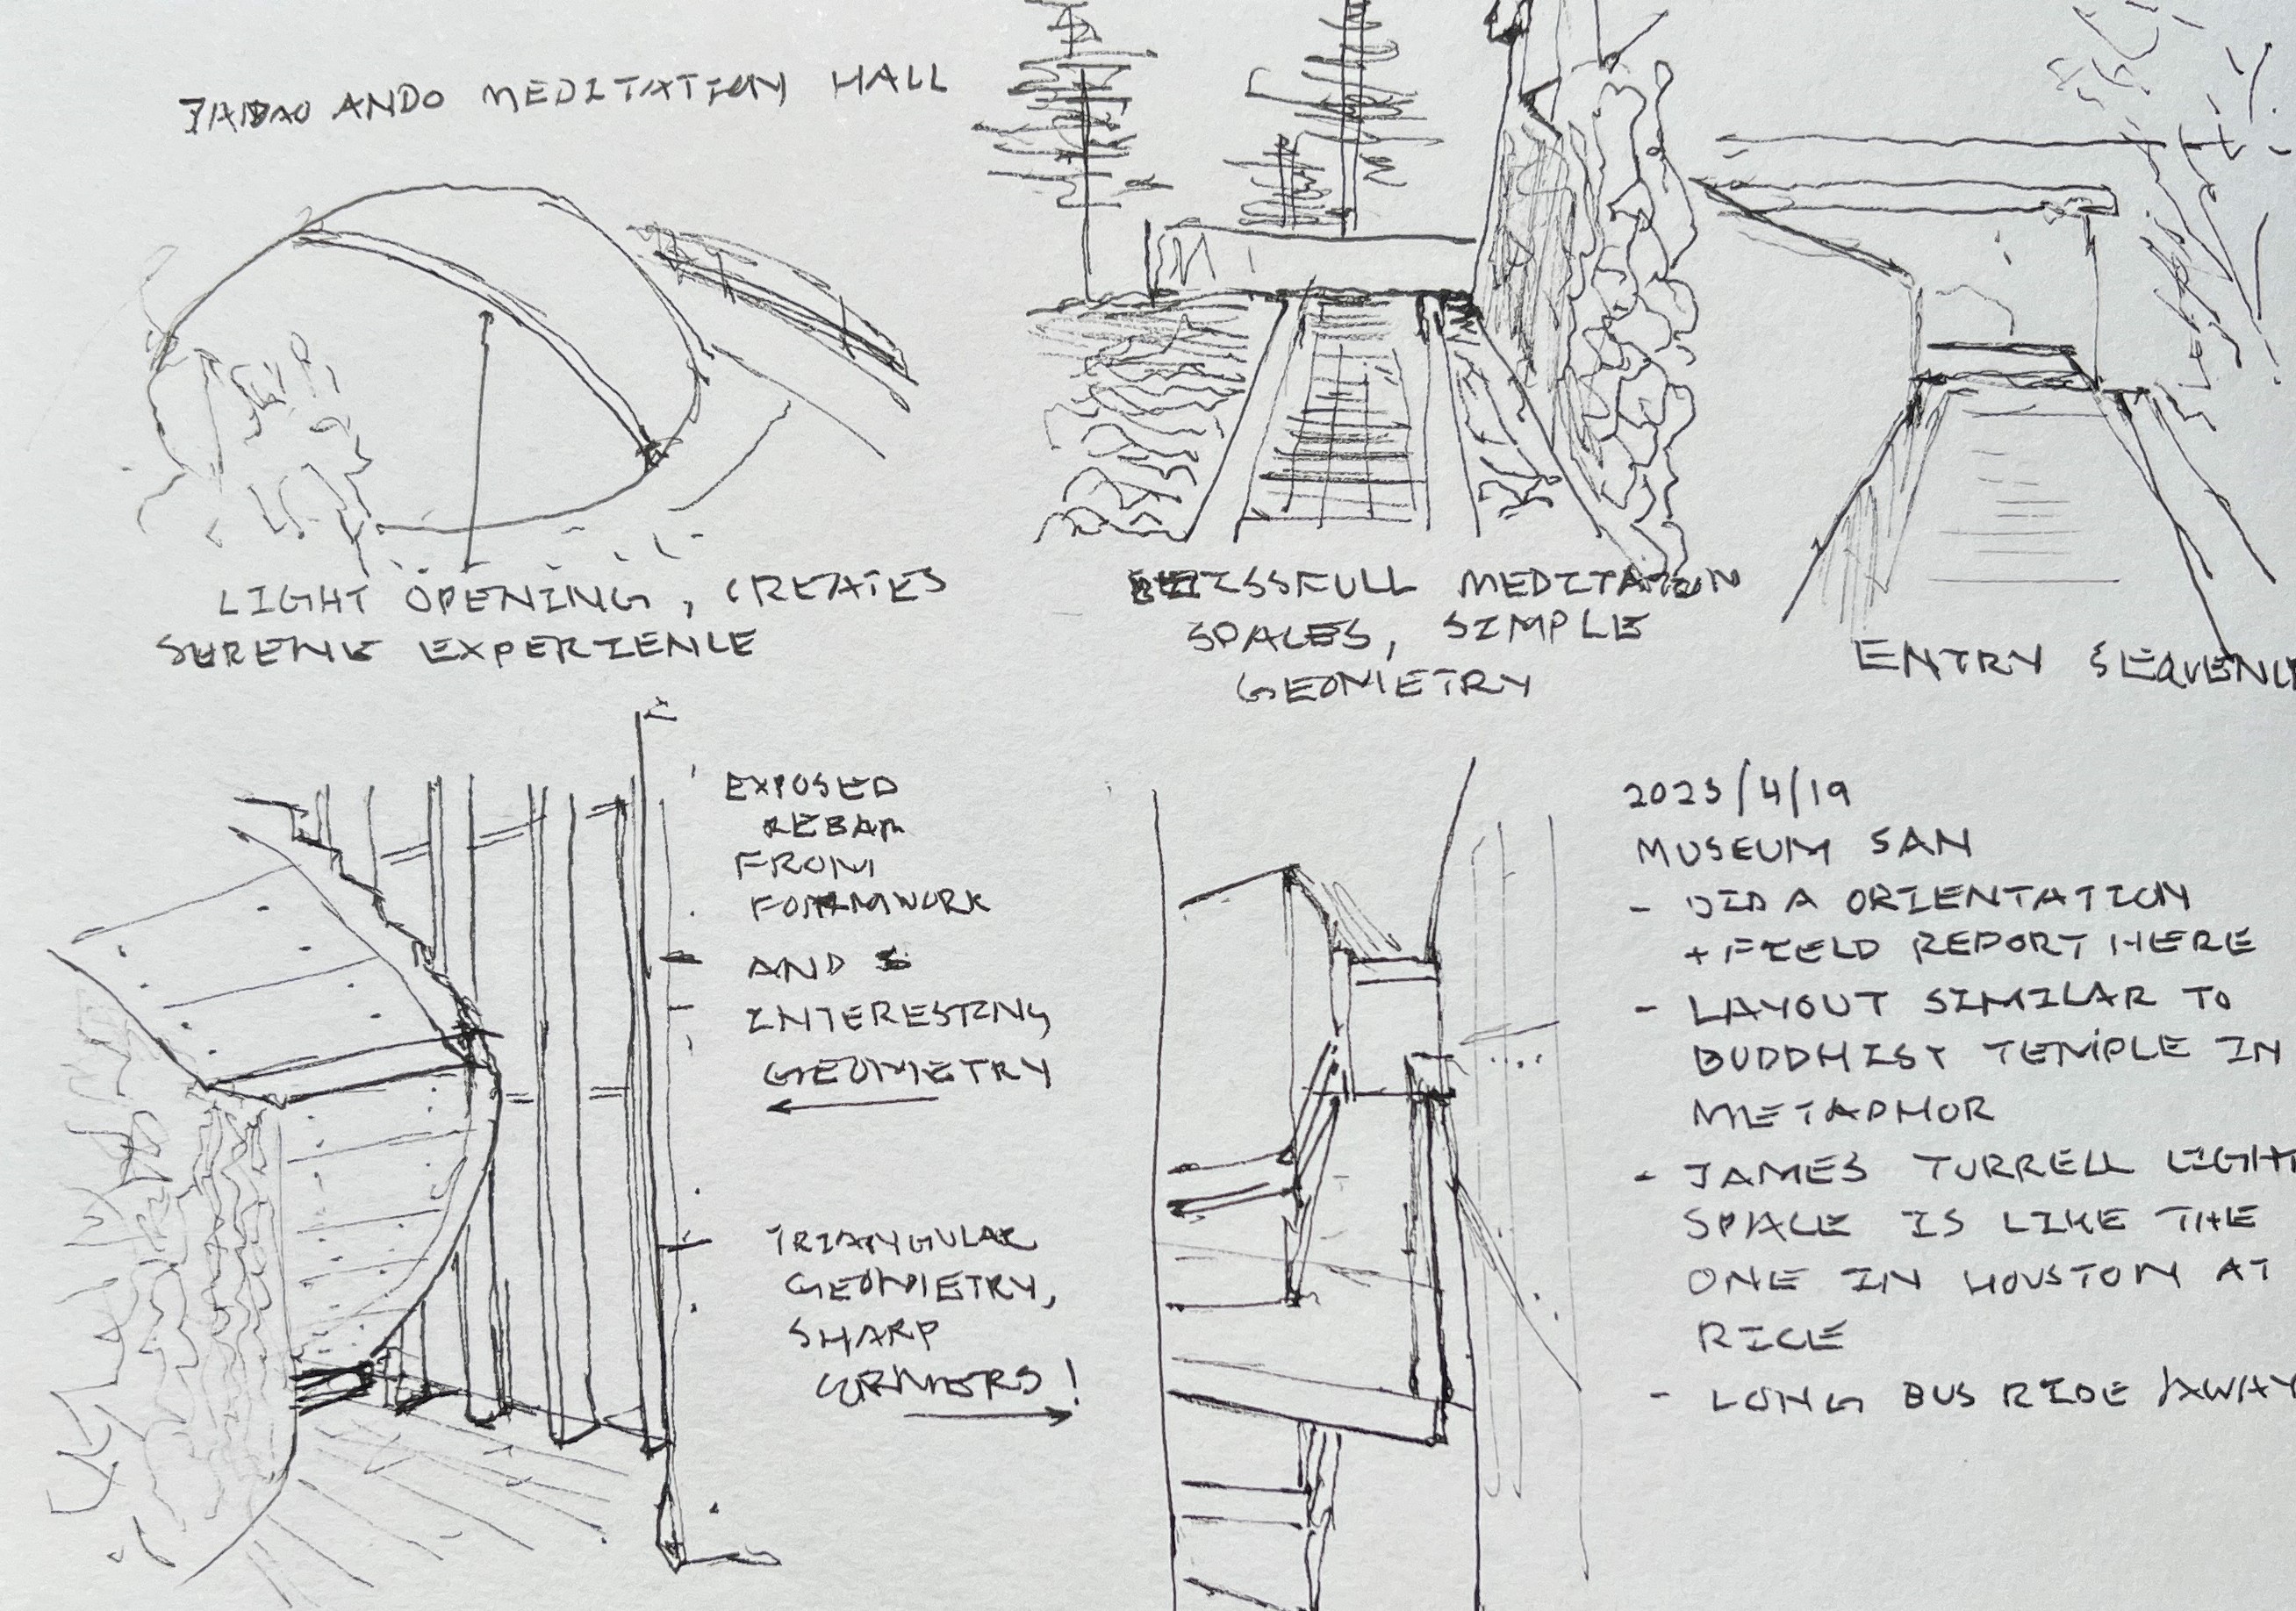 ANDO MEDITATION HALL
LIGHT OPENING, CREATES
SERENE EXPERIENCE
BLISSFULL MEDITATION
SPACES, SIMPLE
GEOMETRY
ENTRY SEQUENC
EXPOSED
REBAR
FROM
FORMWORK
AND
INTERESTING
GEOMETRY
TRIANGULAR
GEOMETRY,
SHARP
CORNERS!
2023/4/19
MUSEUM SAN
- DID A ORIENTATION
+ FIELD REPORT HERE
- LAYOUT SIMILAR TO
BUDDHIST TEMPLE IN
METAPHOR
- JAMES TURRELL LIGHT
SPACE IS LIKE THE
ONE IN HOUSTON AT
RICE
- LONG BUS RIDE AWAY